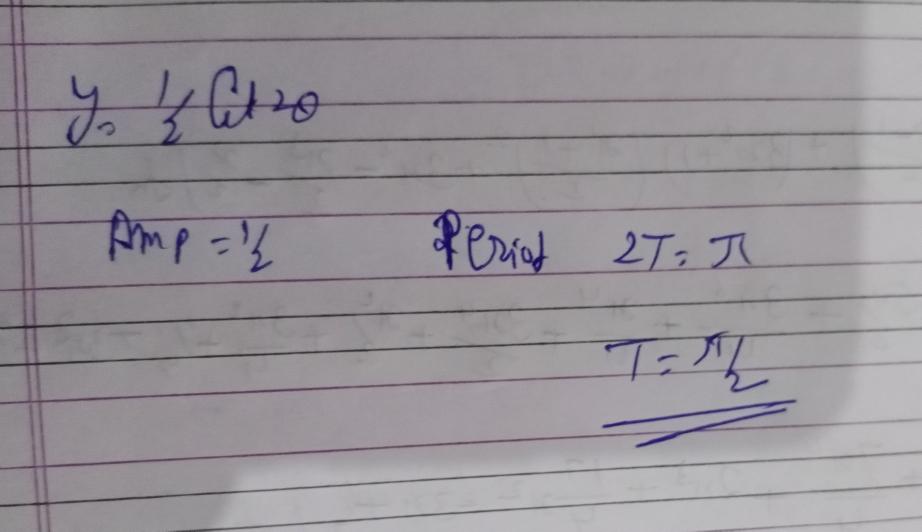 y = 1/2 Cot 2θ
Amp = 1/2 Period 2T = π
T = π/2